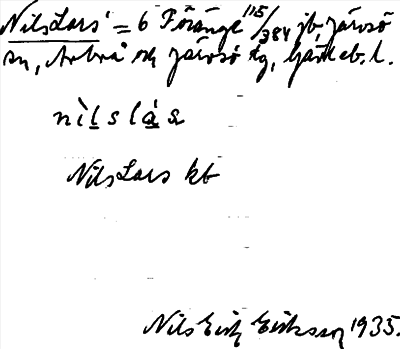 NilsLars' = 6 Föränge 115/384 jb, Järvsö
sn, Arbrå och Järvsö tg, Gävleb. l.
nìlslás
NilsLars kb
Nils Erik Eriksson 1935.